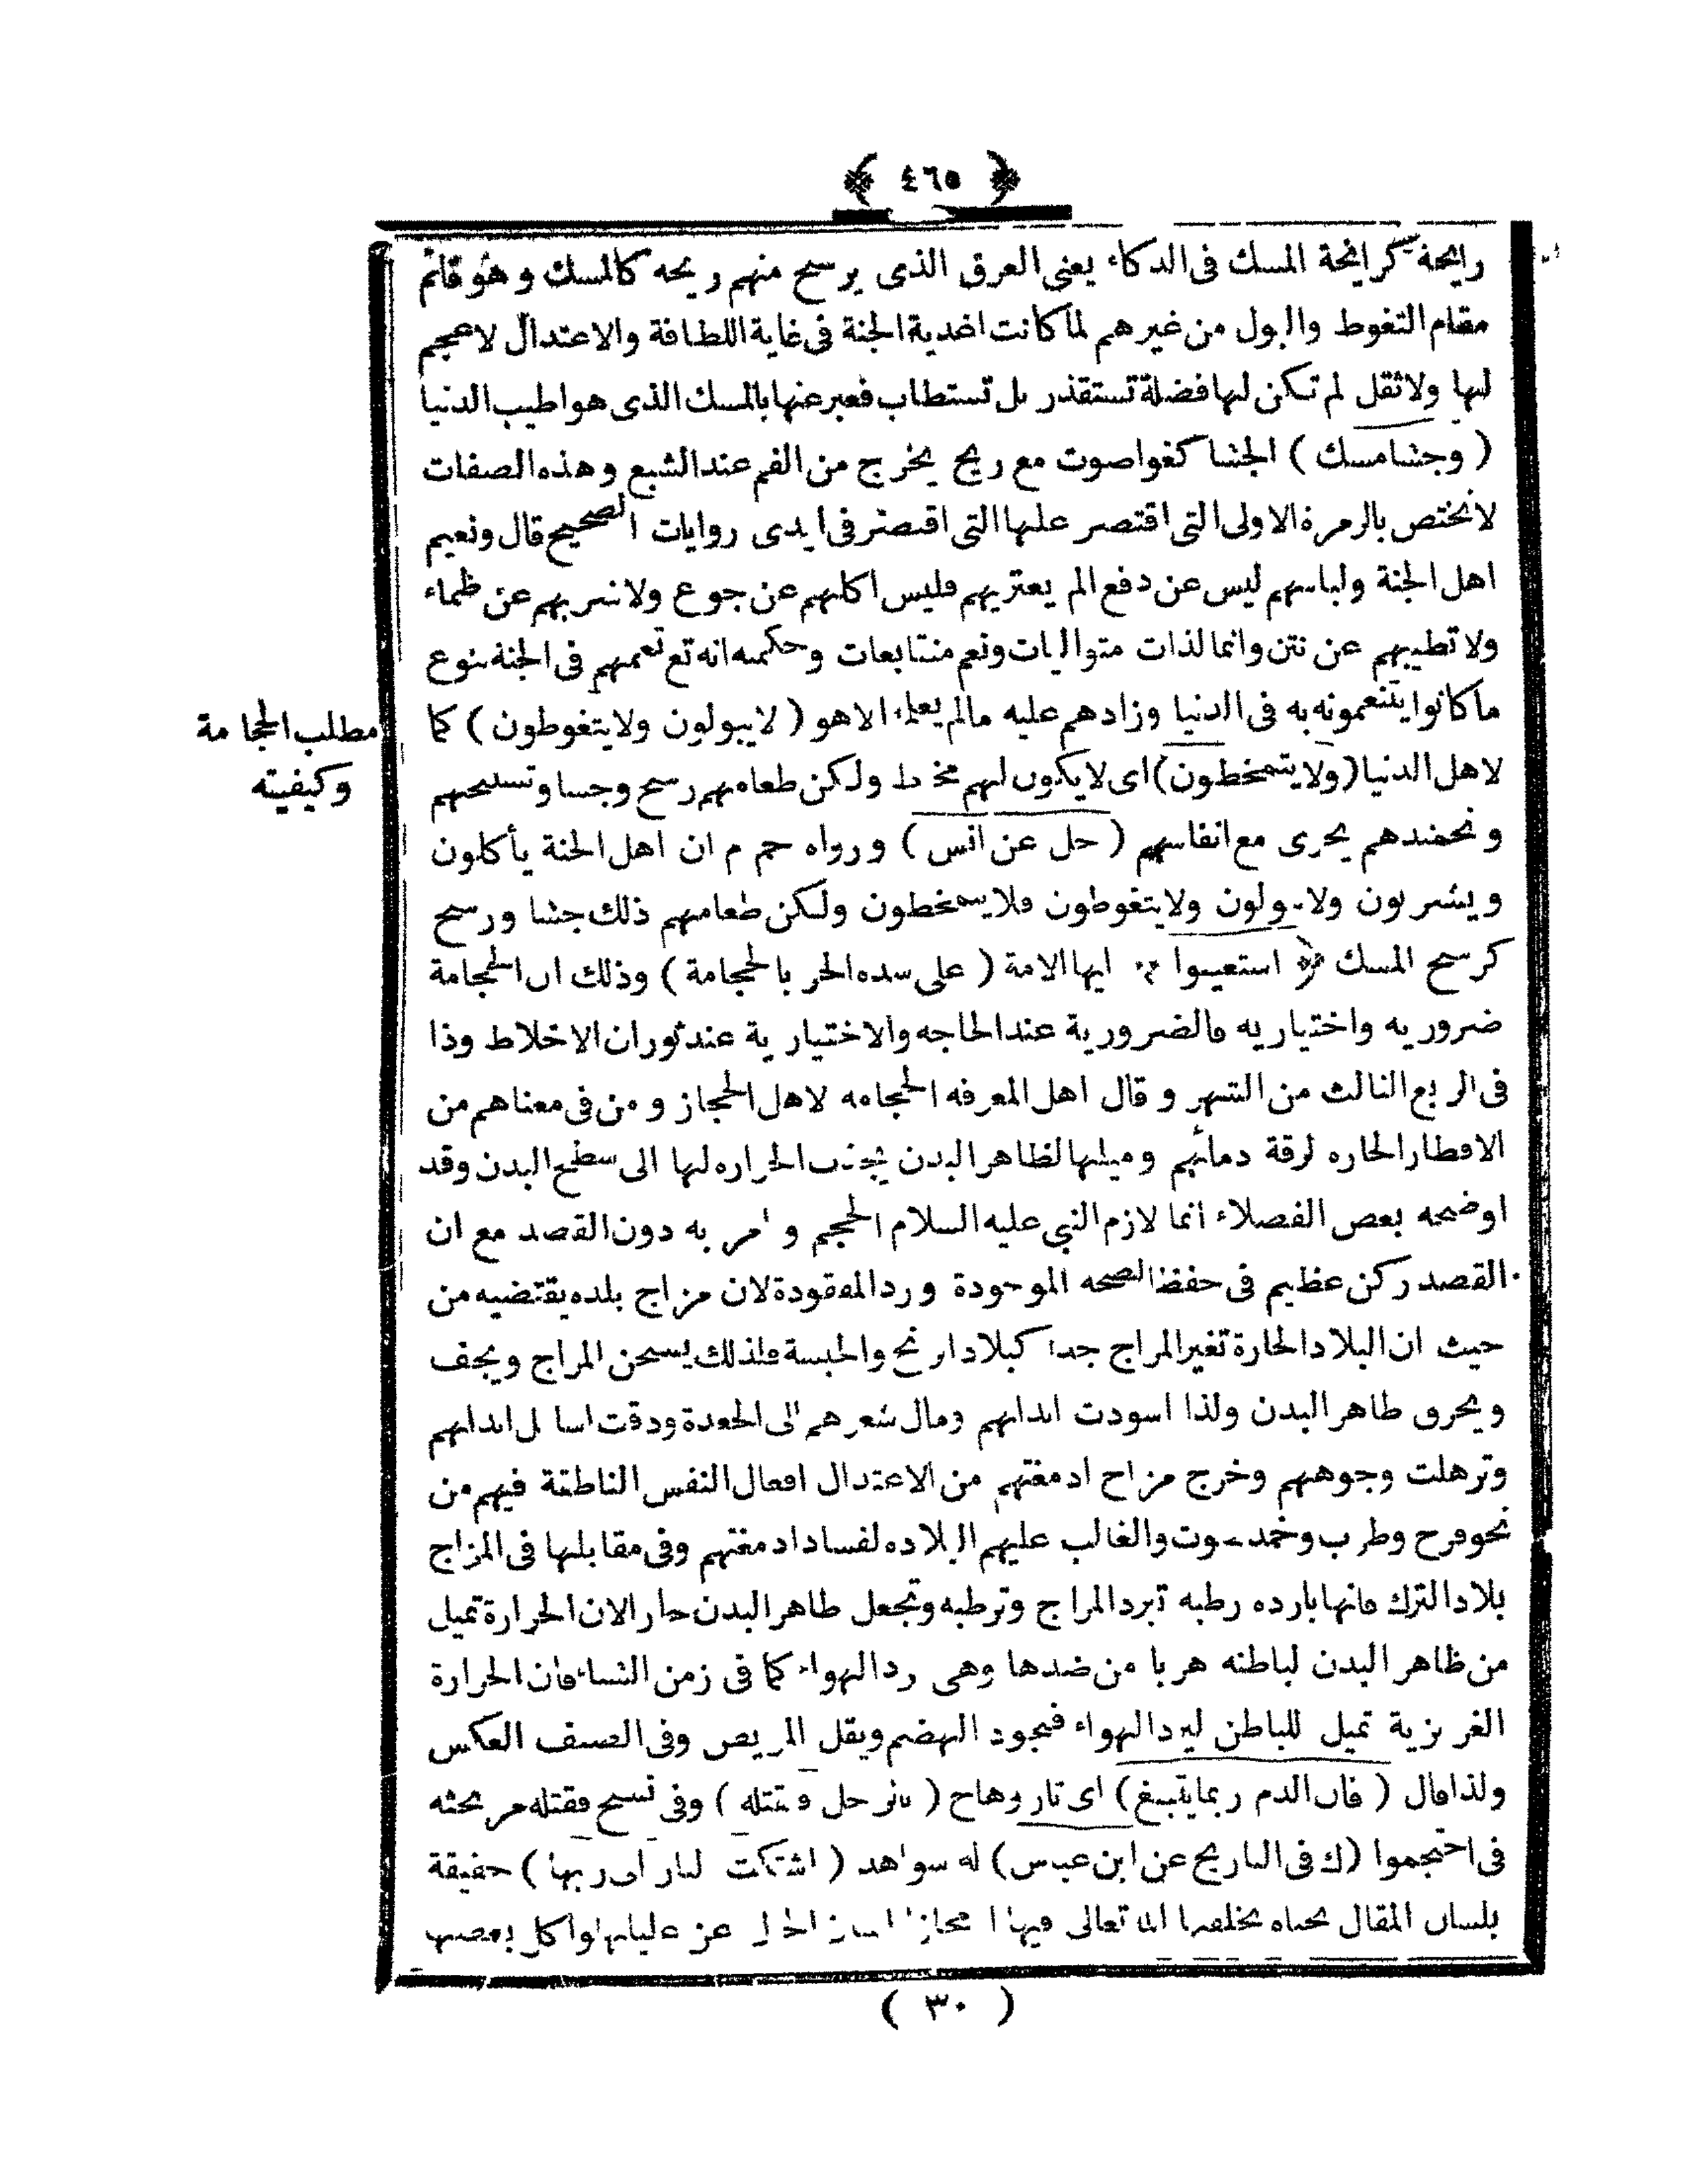 ٤٦٥
رايحة كرايحة المسك فى الدكاء يعنى العرق الذى يرسح منهم ريحه كالمسك وهو قائم
مقام التغوط والبول من غيرهم لما كانت اغدية الجنة فى غاية اللطافة والاعتدال لا عجم
لها ولا ثقل لم تكن لها فضلة تستقذر بل تستطاب فعبر عنها بالمسك الذى هو اطيب الدنيا
( وجشا مسك ) الجشا كغوا صوت مع ريح يخرج من الفم عند الشبع وهذه الصفات
لا تختص بالزمرة الاولى التى اقتصر عليها التى اقتصر فى ايدى روايات الصحيح قال ونعيم
اهل الجنة ولباسهم ليس عن دفع الم يعتريهم فليس اكلهم عن جوع ولا شربهم عن ظماء
ولا تطيبهم عن نتن وانما لذات متواليات ونعم متتابعات وحكمته انه تع نعمهم فى الجنة بنوع
ما كانوا يتنعمونه به فى الدنيا وزادهم عليه مالم يعلمه الا هو ( لا يبولون ولا يتغوطون ) كما
لاهل الدنيا ( ولا يتمخطون ) اى لا يكون لهم مخاط ولكن طعامهم رسح وجسا وتسبيحهم
وتحميدهم يجرى مع انفاسهم ( حل عن انس ) ورواه حم م ان اهل الجنة يأكلون
ويشربون ولا يبولون ولا يتغوطون فلا يتمخطون ولكن طعامهم ذلك جشا ورسح
كرسح المسك ﴿ استعينوا ﴾ ايها الامة ( على شده الحر بالحجامة ) وذلك ان الحجامة
ضروريه واختياريه فالضرورية عند الحاجه والاختيارية عند ثوران الاخلاط وذا
فى الربع الثالث من الشهر وقال اهل المعرفه الحجامه لاهل الحجاز ومن فى معناهم من
الاقطار الحاره لرقة دمائهم وميلها لظاهر البدن بجذب الحراره لها الى سطح البدن وقد
اوضحه بعض الفضلاء انما لازم النبى عليه السلام الحجم وامر به دون القصد مع ان
القصد ركن عظيم فى حفظ الصحه الموجودة ورد المفقودة لان مزاج بلده يقتضيه من
حيث ان البلاد الحارة تغير المزاج جدا كبلاد ازنج والحبسة فلذلك يسخن المزاج ويجف
ويحرق ظاهر البدن ولذا اسودت ابدانهم ومال شعرهم الى الجعدة ودقت اسافل ابدانهم
وترهلت وجوههم وخرج مزاج ادمغتهم من الاعتدال افعال النفس الناطقة فيهم من
نحو فرح وطرب وخمد صوت والغالب عليهم البلاده لفساد ادمغتهم وفى مقابلها فى المزاج
بلاد الترك فانها بارده رطبه تبرد المزاج وترطبه وتجعل ظاهر البدن حارا لان الحرارة تميل
من ظاهر البدن لباطنه هربا من ضدها وهى رد الهواء كما فى زمن الشتاء فان الحرارة
الغريزية تميل للباطن لبرد الهواء فيجود الهضم ويقل المريض وفى الصيف العكس
ولذا قال ( فان الدم ربما يتبيغ ) اى ثار وهاج ( بالرجل فيقتله ) وفى نسخ فقتله مر بحثه
فى احتجموا ( ك فى التاريخ عن ابن عباس ) له شواهد ( اشتكت النار الى ربها ) حقيقة
بلسان المقال بحياه يخلقها الله تعالى فيها او مجازا بلسان الحال عن غليانها واكل بعضها
مطلب الحجامة
وكيفيته
( ٣٠ )